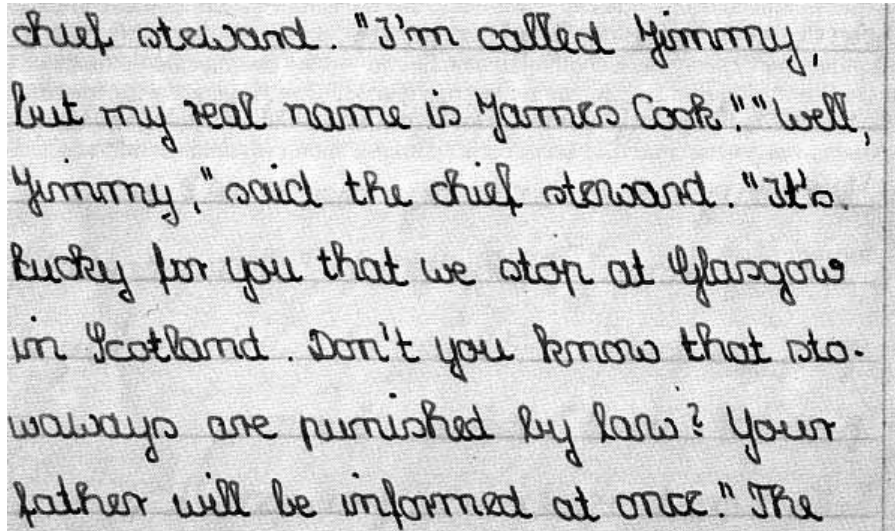 chief steward. "I'm called Jimmy,
but my real name is James Cook." "Well,
Jimmy," said the chief steward. "It's.
lucky for you that we stop at Glasgow
in Scotland. Don't you know that sto-
waways are punished by law? Your
father will be informed at once." The